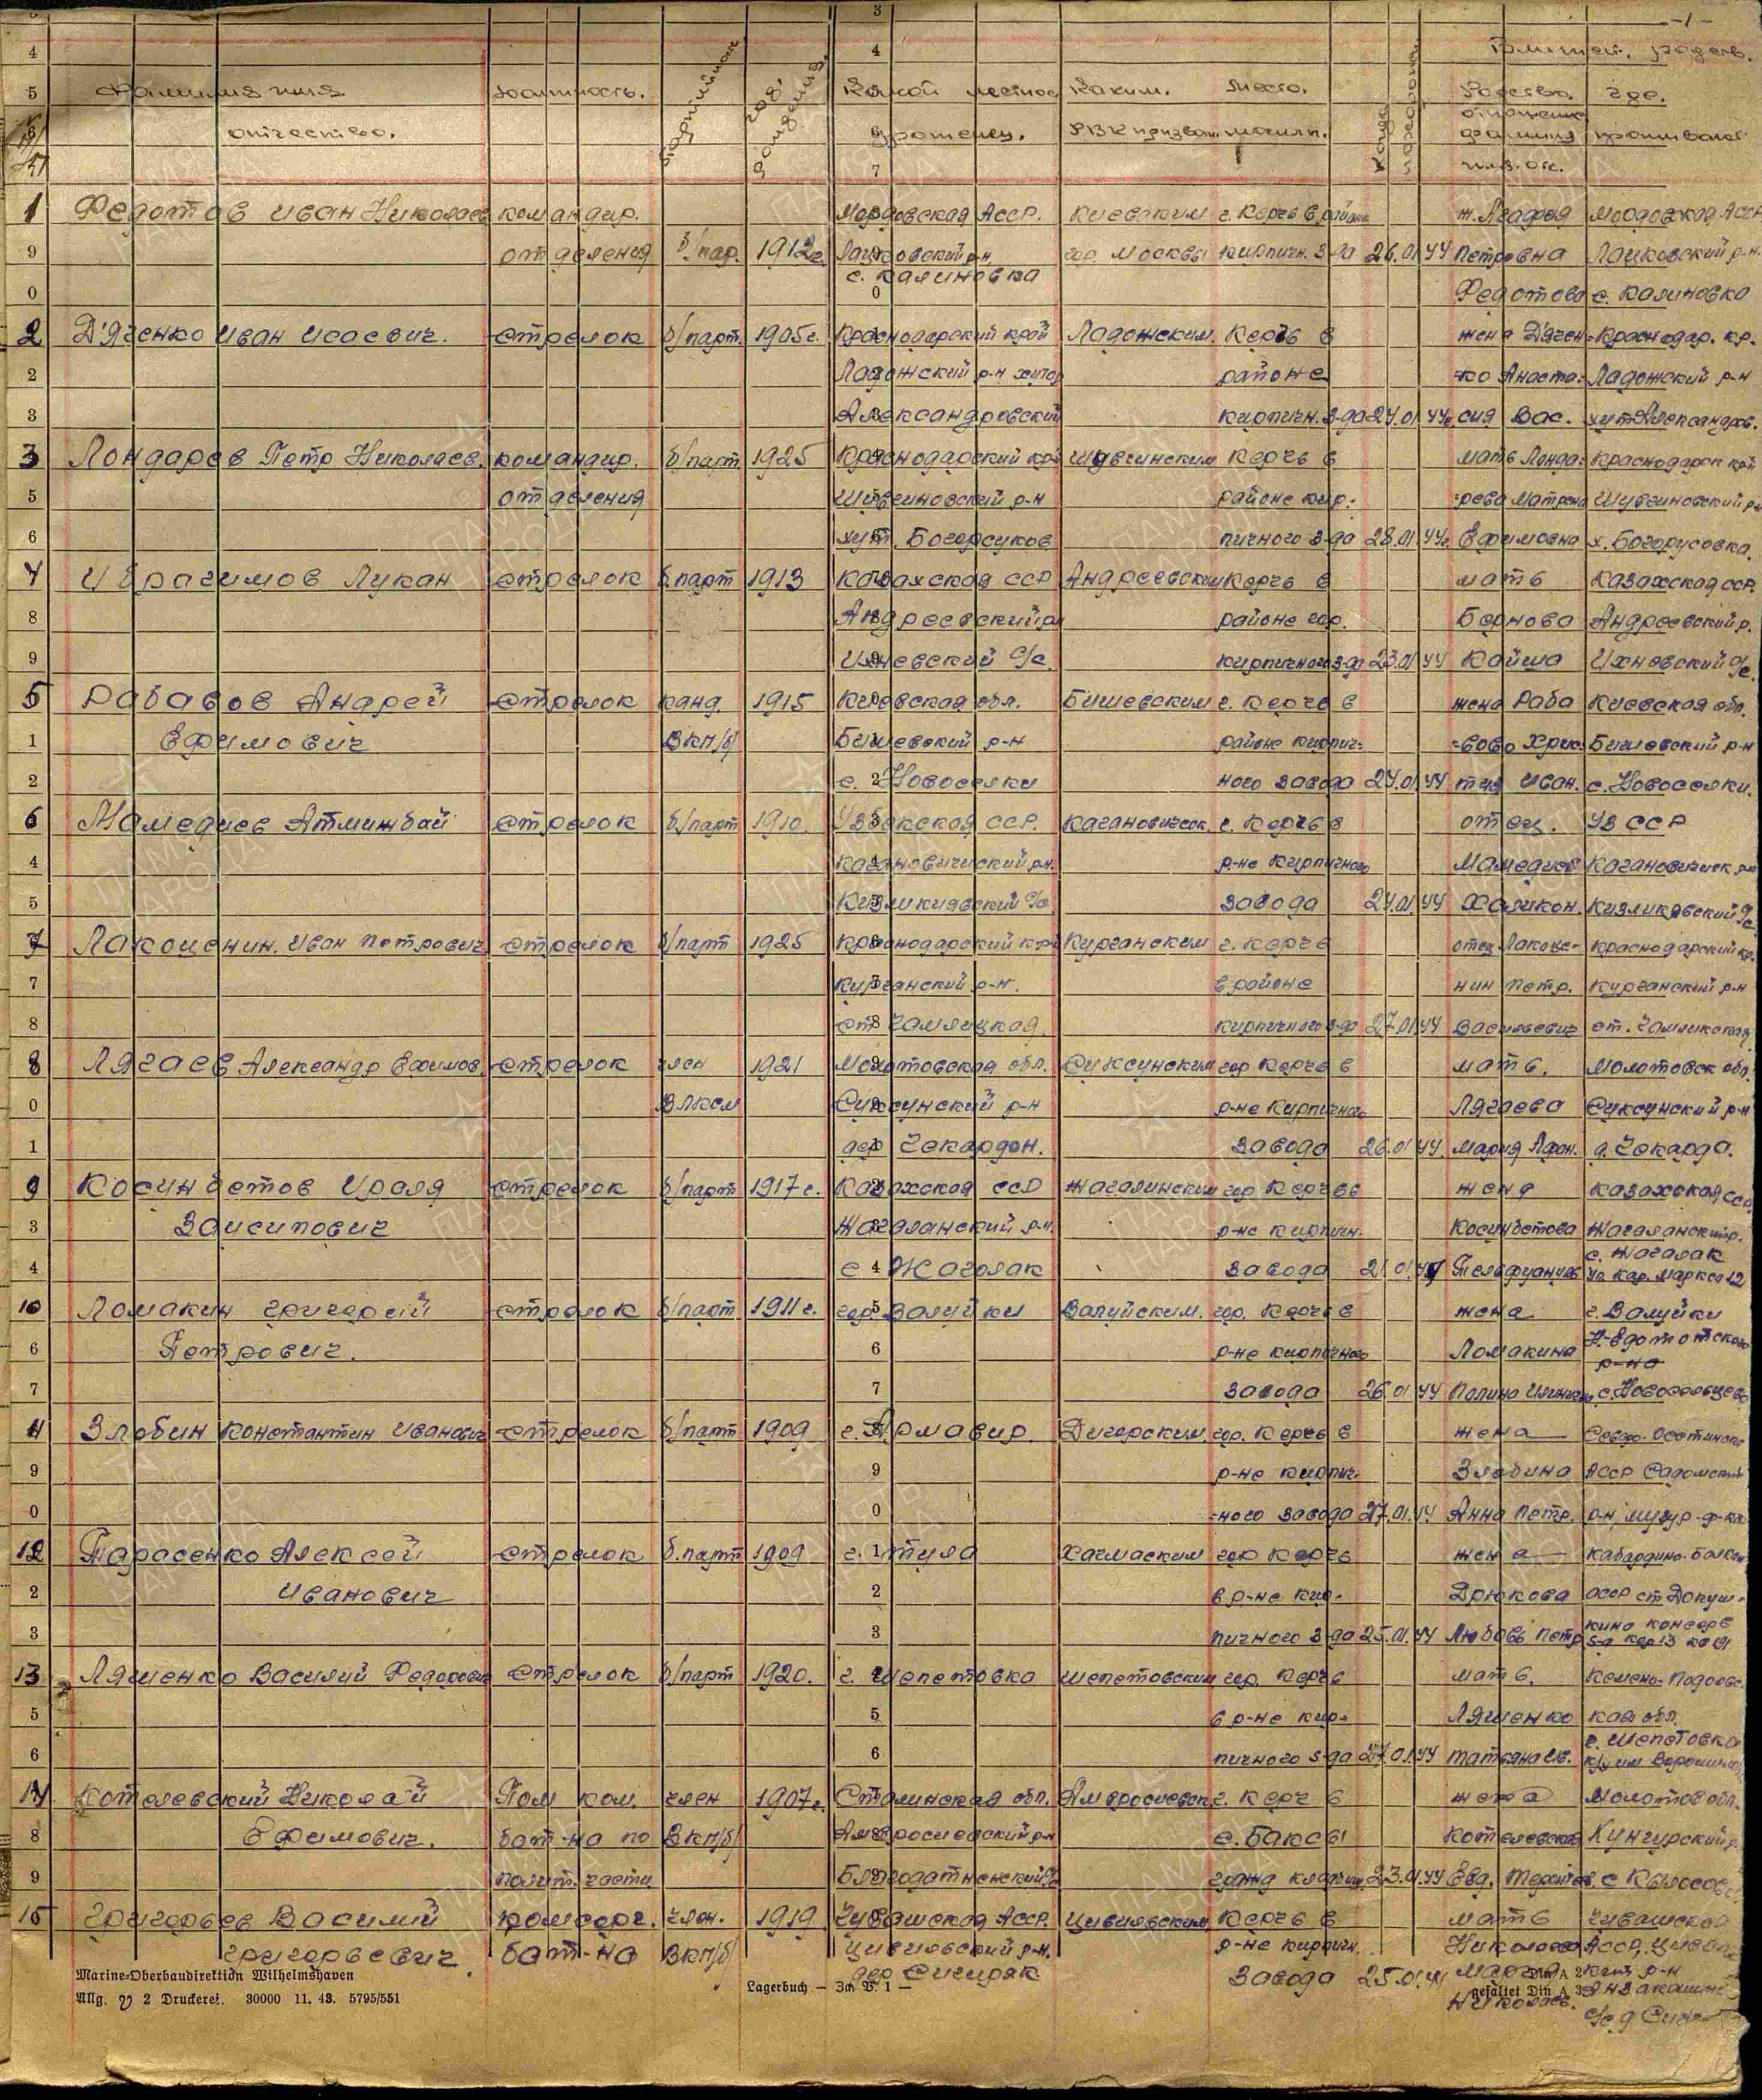 -1-
Ближай. родств.
Фамилия имя отчество.
должность.
партийность
год рождения
Какой местнос уроженец.
Каким РВК призван.
место могилы.
Когда похоронен
Родство. отношение фамилия и.о.
где. проживают
1 Федотов Иван Николаев. командир. Мордовская АССР. Киевским г. Керчь в районе ж. Агафья Мордовская АССР
отделения б/пар. 1912г. Лацковский р-н, гор. Москвы кирпичн. з-да 26.01.44 Петровна Лацковский р-н.
с. Калиновка Федотова с. Калиновка
2 Дяченко Иван Исаевич. стрелок б/парт. 1905г. Краснодарский край Ладожским. Керчь в жена Дячен- Краснодар. кр.
Ладожский р-н хутор районе ко Анаста- Ладожский р-н
Александровский кирпичн. з-да 24.01.44г. сия Вас. хут. Александров.
3 Лондарев Петр Николаев. командир. б/парт 1925 Краснодарский край Керчь в мать Лонда- Краснодарск край
отделения р-н районе кир- рева Матрена
хут. Богарсуков пичного з-да 28.01.44г. Ефимовна х. Богорусовка.
4 Ибрагимов Лукан стрелок б.парт 1913 Казахская ССР Андреевским Керчь в мать Казахская ССР.
Андреевский р. районе гор. Бернова Андреевский р.
Ихневский с/с. кирпичного з-да 23.01.44 Кайша Ихновский с/с.
5 Рабавов Андрей стрелок канд. 1915 Киевская обл. Бишевским г. Керчь в жена Раба Киевская обл.
Ефимович ВКП/б/ Бишевский р-н районе кирпич- вово Хрис- Бишевский р-н
с. Новоселки ного завода 24.01.44 тия Иван. с. Новоселки.
6 Мамедиев Атминбай стрелок б/парт 1910. Узбекская ССР. Кагановическ. г. Керчь в отец. Уз ССР
Кагановичиский р-н. р-не кирпичного Мамедиев Кагановическ р-н
Кизликиявский с/с завода 24.01.44 Халикон. Кизликявский с/с
7 Лакоценин. Иван Петрович стрелок б/парт 1925 Краснодарский край Курганским г. Керчь отец Лакоце- Краснодарский кр.
Курганский р-н. в районе нин Петр. Курганский р-н
ст Чамлыцкая. кирпичного з-да 27.01.44 Васильевич ст. Чамликская
8 Лягаев Александр Ефимов. стрелок член 1921 Молотовская обл. Суксунским гор Керчь в мать. Молотовск обл.
ВЛКСМ Суксунский р-н р-не Кирпичного Лягаева Суксунский р-н
дер Чекардон. завода 26.01.44. Мария Афан. д. Чекарда.
9 Косунбетов Ураля стрелок б/парт 1917г. Казахская ССР Жагалинским гор Керчь в жена Казахская ССР
Заисипович Жагаланский р-н. р-не кирпичн. Косунбетова Жагаланский р.
с Жагалак завода 21.01.44 с. Жагалак ул Кар. Маркса 12
10 Ломакин Григорий стрелок б/парт 1911г. гор. Валуйки Валуйским. гор. Керчь в жена г. Валуйки
Петрович. р-не кирпичного Ломакина р-на
завода 26.01.44 Полина с. Новосельцево
11 Злобин Константин Иванович стрелок б/парт 1909 г. Армавир Дигорским. гор. Керчь в жена Северо-Осетинская
р-не кирпич- Злобина АССР Садомский
ного завода 27.01.44 Анна Петр. р-н, мизур-ф-ка
12 Тарасенко Алексей стрелок б.парт 1909 г. Тула Хачмаским гор Керчь жена Кабардино-Балкан
Иванович в р-не кир- Дрюкова АССР ст Докуш-
пичного з-да 25.01.44 Любовь Петр кино консерв з-д
13 Ляшенко Василий Федорович стрелок б/парт 1920. г. Шепетовка Шепетовским гор. Керчь мать. Камено-Подольс-
в р-не кир- Ляшенко кая обл.
пичного з-да 27.01.44 Татьяна Ив. г. Шепетовка к/х им Ворошилова
14 Котелевский Николай Пом ком. член 1907г. Сталинская обл. Амвросиевск. г. Керчь в жена Молотов обл.
Ефимович. бат-на по ВКП/б/ Амвросиевский р-н с. Баксы Котелевская Кунгурский р.
полит. части Благодатненский с/с гражд кладбищ. 23.01.44 Евд. Терентьев. с Кылосово
15 Григорьев Василий комсорг. член. 1919 Чувашская АССР. Цивильским Керчь в мать Чувашская
Григорьевич. бат-на ВКП/б/ Цивильский р-н. р-не кирпичн. Николаева АССР, Цивиль-
дер Сигиряк. завода 25.01.44 Мария Николаев. ский р-н
Marine-Oberbaudirektion Wilhelmshaven
Allg. V 2 Druckerei. 30000 11. 43. 5795/551
Lagerbuch — Zch B. 1 —
Din A 2
gefaltet Din A 3
ПАМЯТЬ НАРОДА